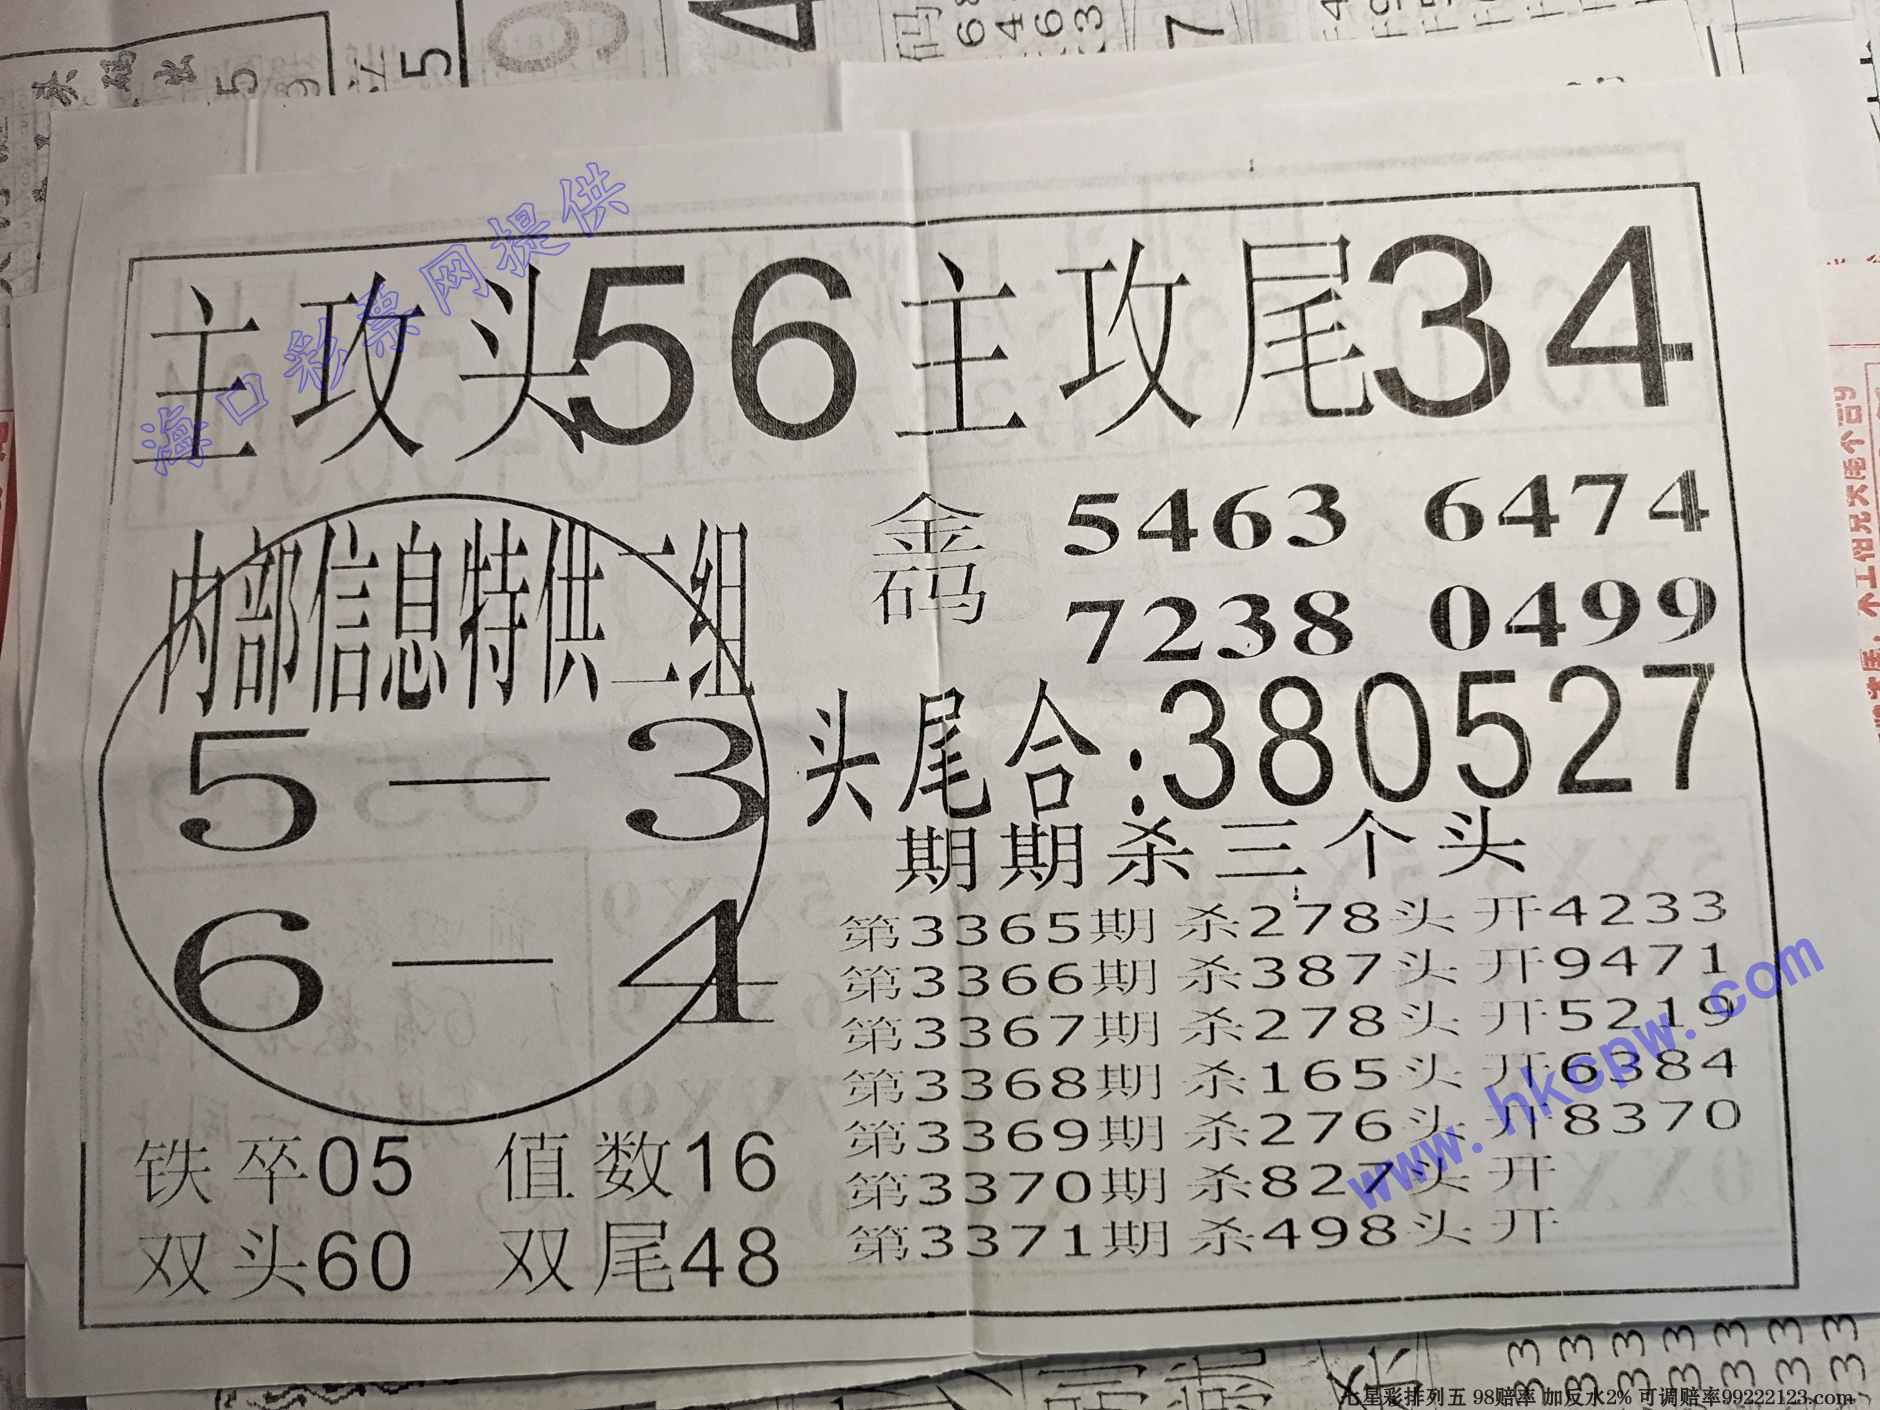 海口彩票网提供
主攻头56 主攻尾34
内部信息特供二组
5—3
6—4
金码 5463 6474
7238 0499
头尾合:380527
期期杀三个头
第3365期 杀278头 开4233
第3366期 杀387头 开9471
第3367期 杀278头 开5219
第3368期 杀165头 开6384
第3369期 杀276头 开8370
第3370期 杀827头 开
第3371期 杀498头 开
铁卒05 值数16
双头60 双尾48
www.hkcpw.com
七星彩排列五 98赔率 加反水2% 可调赔率99222123.com